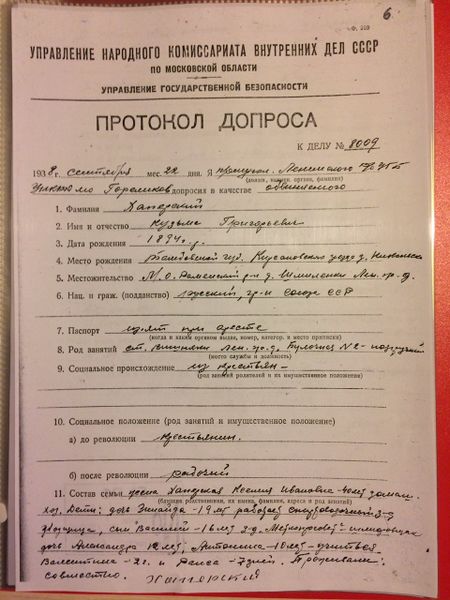 6.
УПРАВЛЕНИЕ НАРОДНОГО КОМИССАРИАТА ВНУТРЕННИХ ДЕЛ СССР
ПО МОСКОВСКОЙ ОБЛАСТИ
УПРАВЛЕНИЕ ГОСУДАРСТВЕННОЙ БЕЗОПАСНОСТИ
ПРОТОКОЛ ДОПРОСА
К ДЕЛУ № 8009
1938 г. сентября мес. 22 дня. Я
(должн., наимен. орган, фамилия)
Гореликов допросил в качестве обвиняемого
1. Фамилия Хаперский
2. Имя и отчество Кузьма Григорьевич
3. Дата рождения 1894 г.р.
4. Место рождения Тамбовской губ. Кирсановского уезда д.
5. Местожительство М.О. Раменский р-н д.
6. Нац. и граж. (подданство) русский, гр-н союза ССР
7. Паспорт изъят при аресте
(когда и каким органом выдан, номер, категор. и место приписки)
8. Род занятий ст. Вишняки Лен. ж.д. №2 -
(место службы и должность)
9. Социальное происхождение из крестьян -
(род занятий родителей и их имущественное положение)
10. Социальное положение (род занятий и имущественное положение)
а) до революции крестьянин.
б) после революции рабочий
11. Состав семьи жена Ксения Ивановна - 40 лет домаш.
(близкие родственники, их имена, фамилии, адреса и род занятий)
хоз. Дети: дочь Зинаида - 19 лет работает
сын Василий - 16 лет
дочь Александра 12 лет, Антонина - 10 лет - учиться
Валентина - 2 г. и Раиса - 7 дней. Проживали
совместно. Хаперский